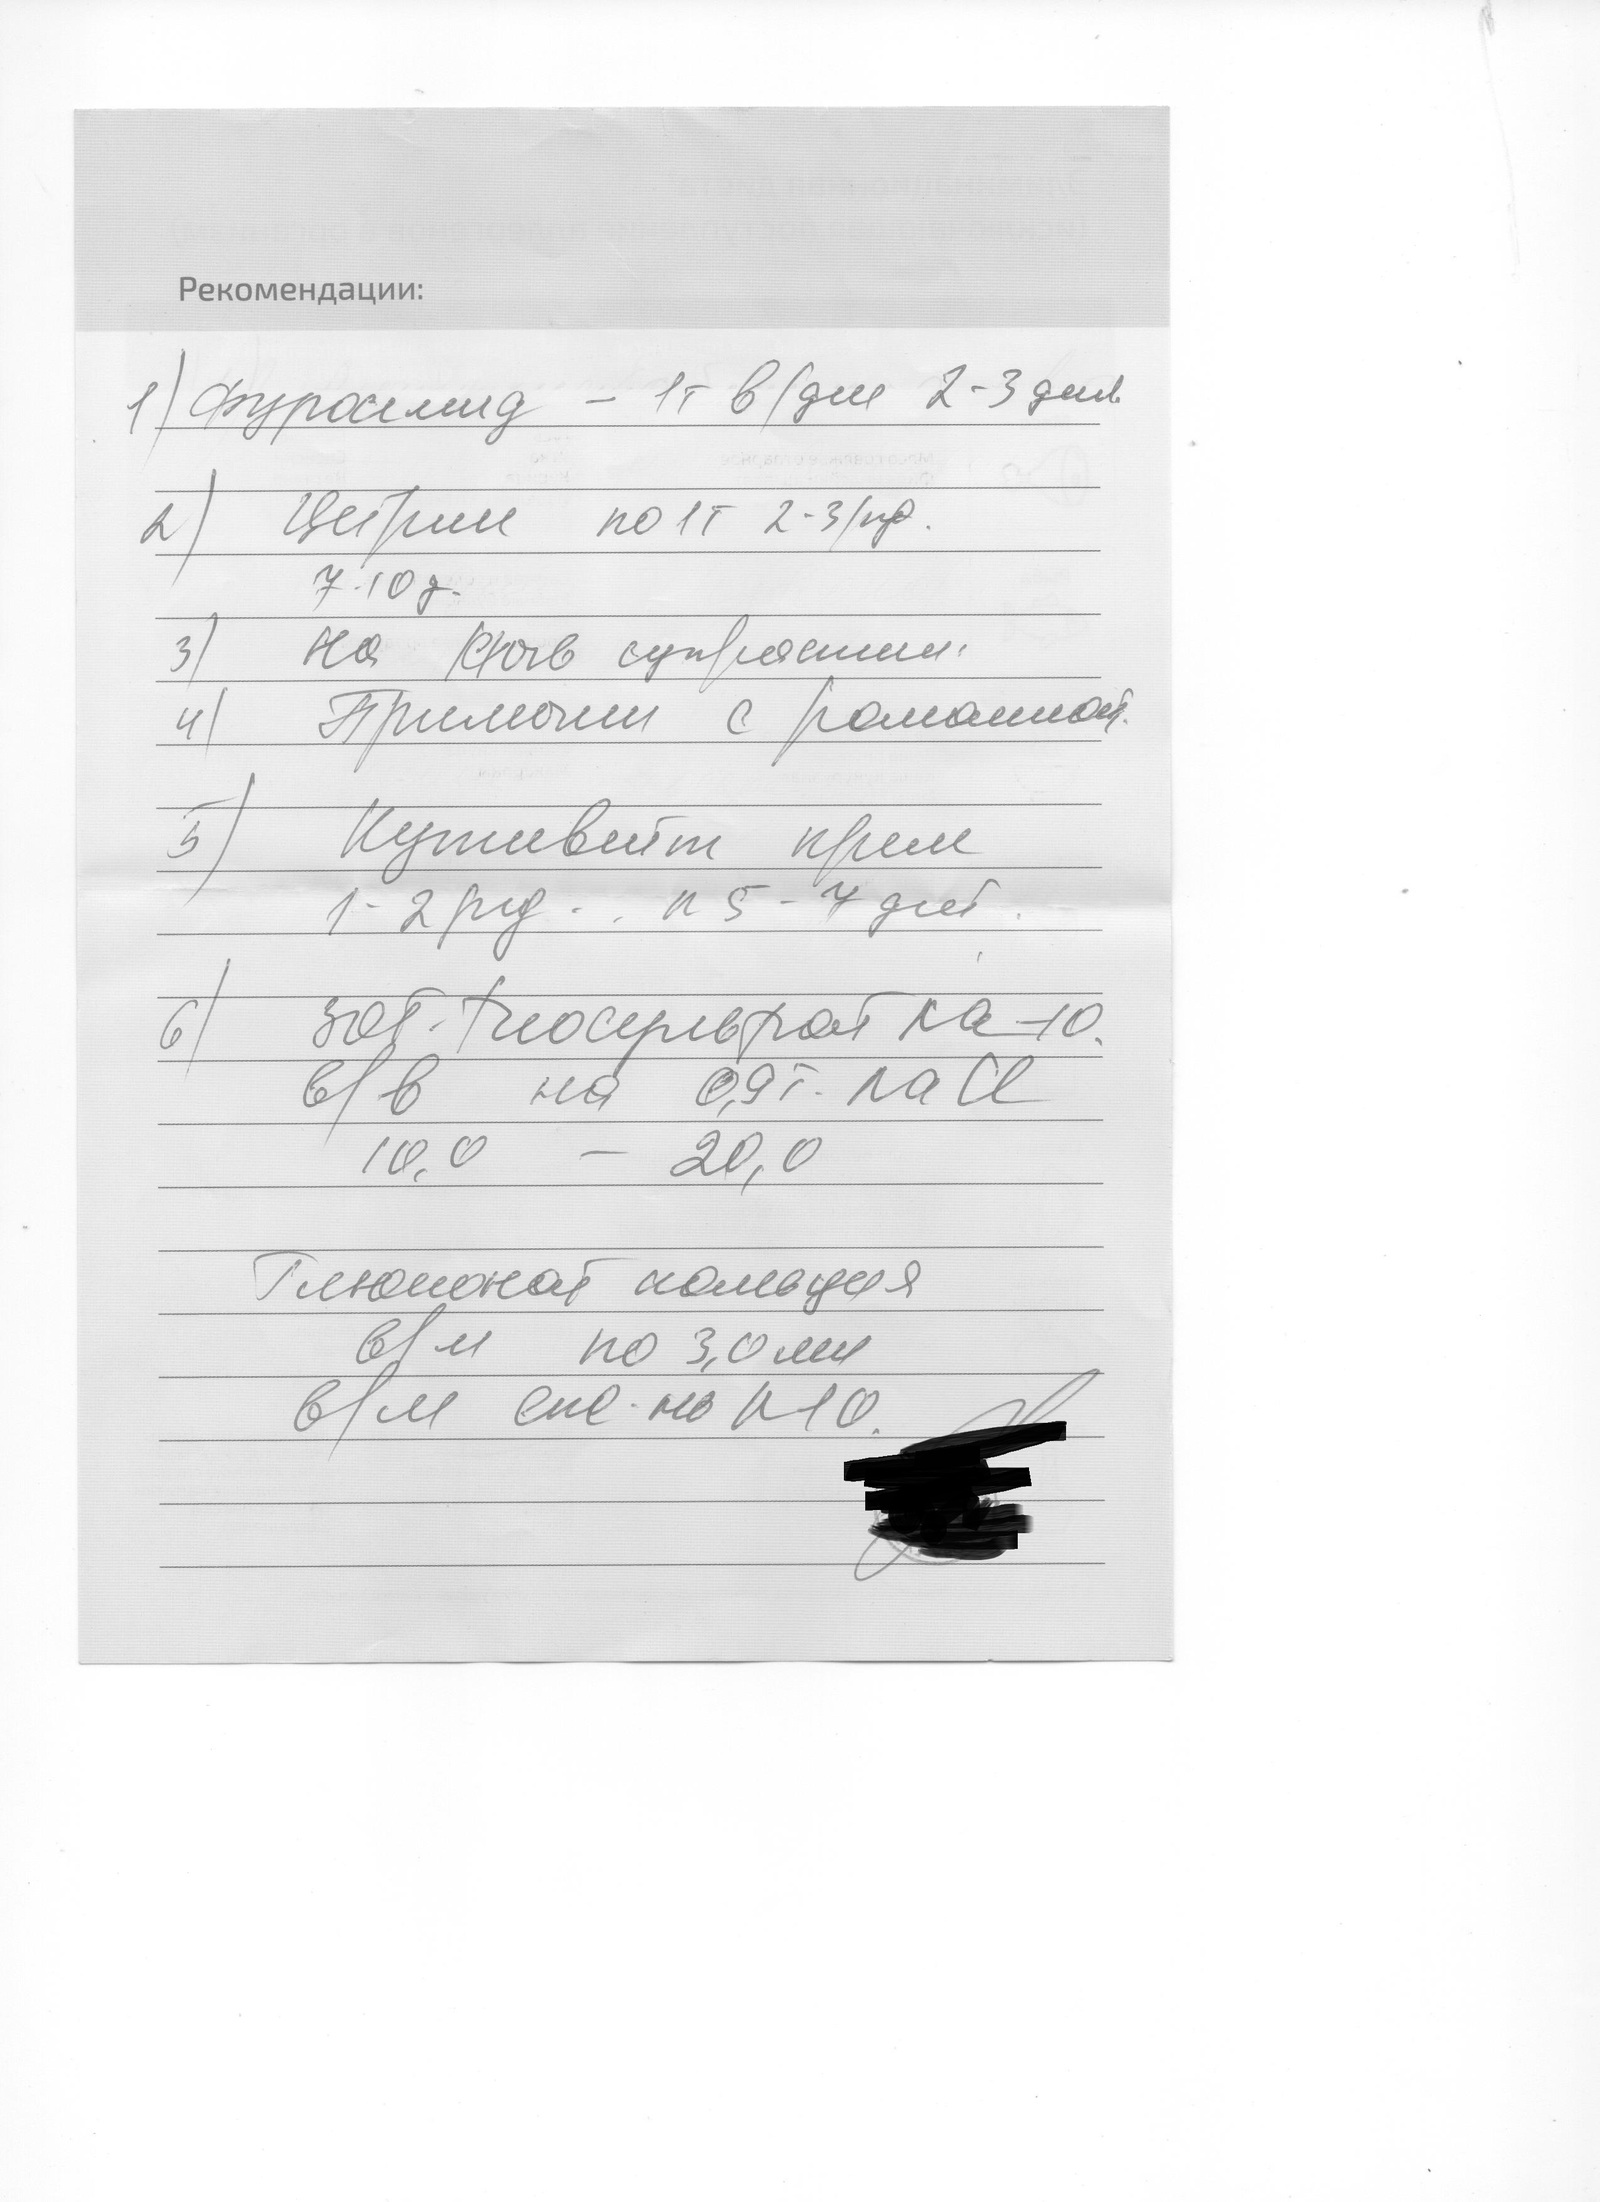 Рекомендации:
1) Фуросемид - 1т в/дне 2-3 дня
2) Цетрин по 1т 2-3 р/д.
7-10 д.
3) На ночь супрастин.
4) Примочки с ромашкой.
5) Кутивейт крем
1-2 р/д . . N 5-7 дней.
6) 30% - тиосульфат Na -10.
в/в на 0,9% NaCl
10,0 - 20,0
Глюконат кальция
в/м по 3,0 мл
в/м N 10.